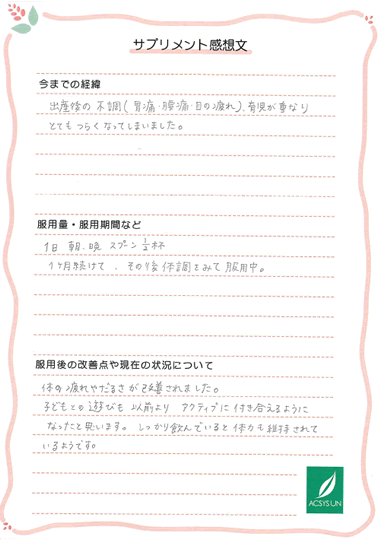 サプリメント感想文
今までの経緯
出産後の不調(胃痛・腰痛・目の疲れ)、育児が重なり
とてもつらくなってしまいました。
服用量・服用期間など
1日 朝、晩 スプーン1/2杯
1ヶ月続けて、その後体調をみて服用中。
服用後の改善点や現在の状況について
体の疲れやだるさが改善されました。
子どもとの遊びも以前より アクティブに付き合えるように
なったと思います。しっかり飲んでいると体力も維持されて
いるようです。
ACSYSUN